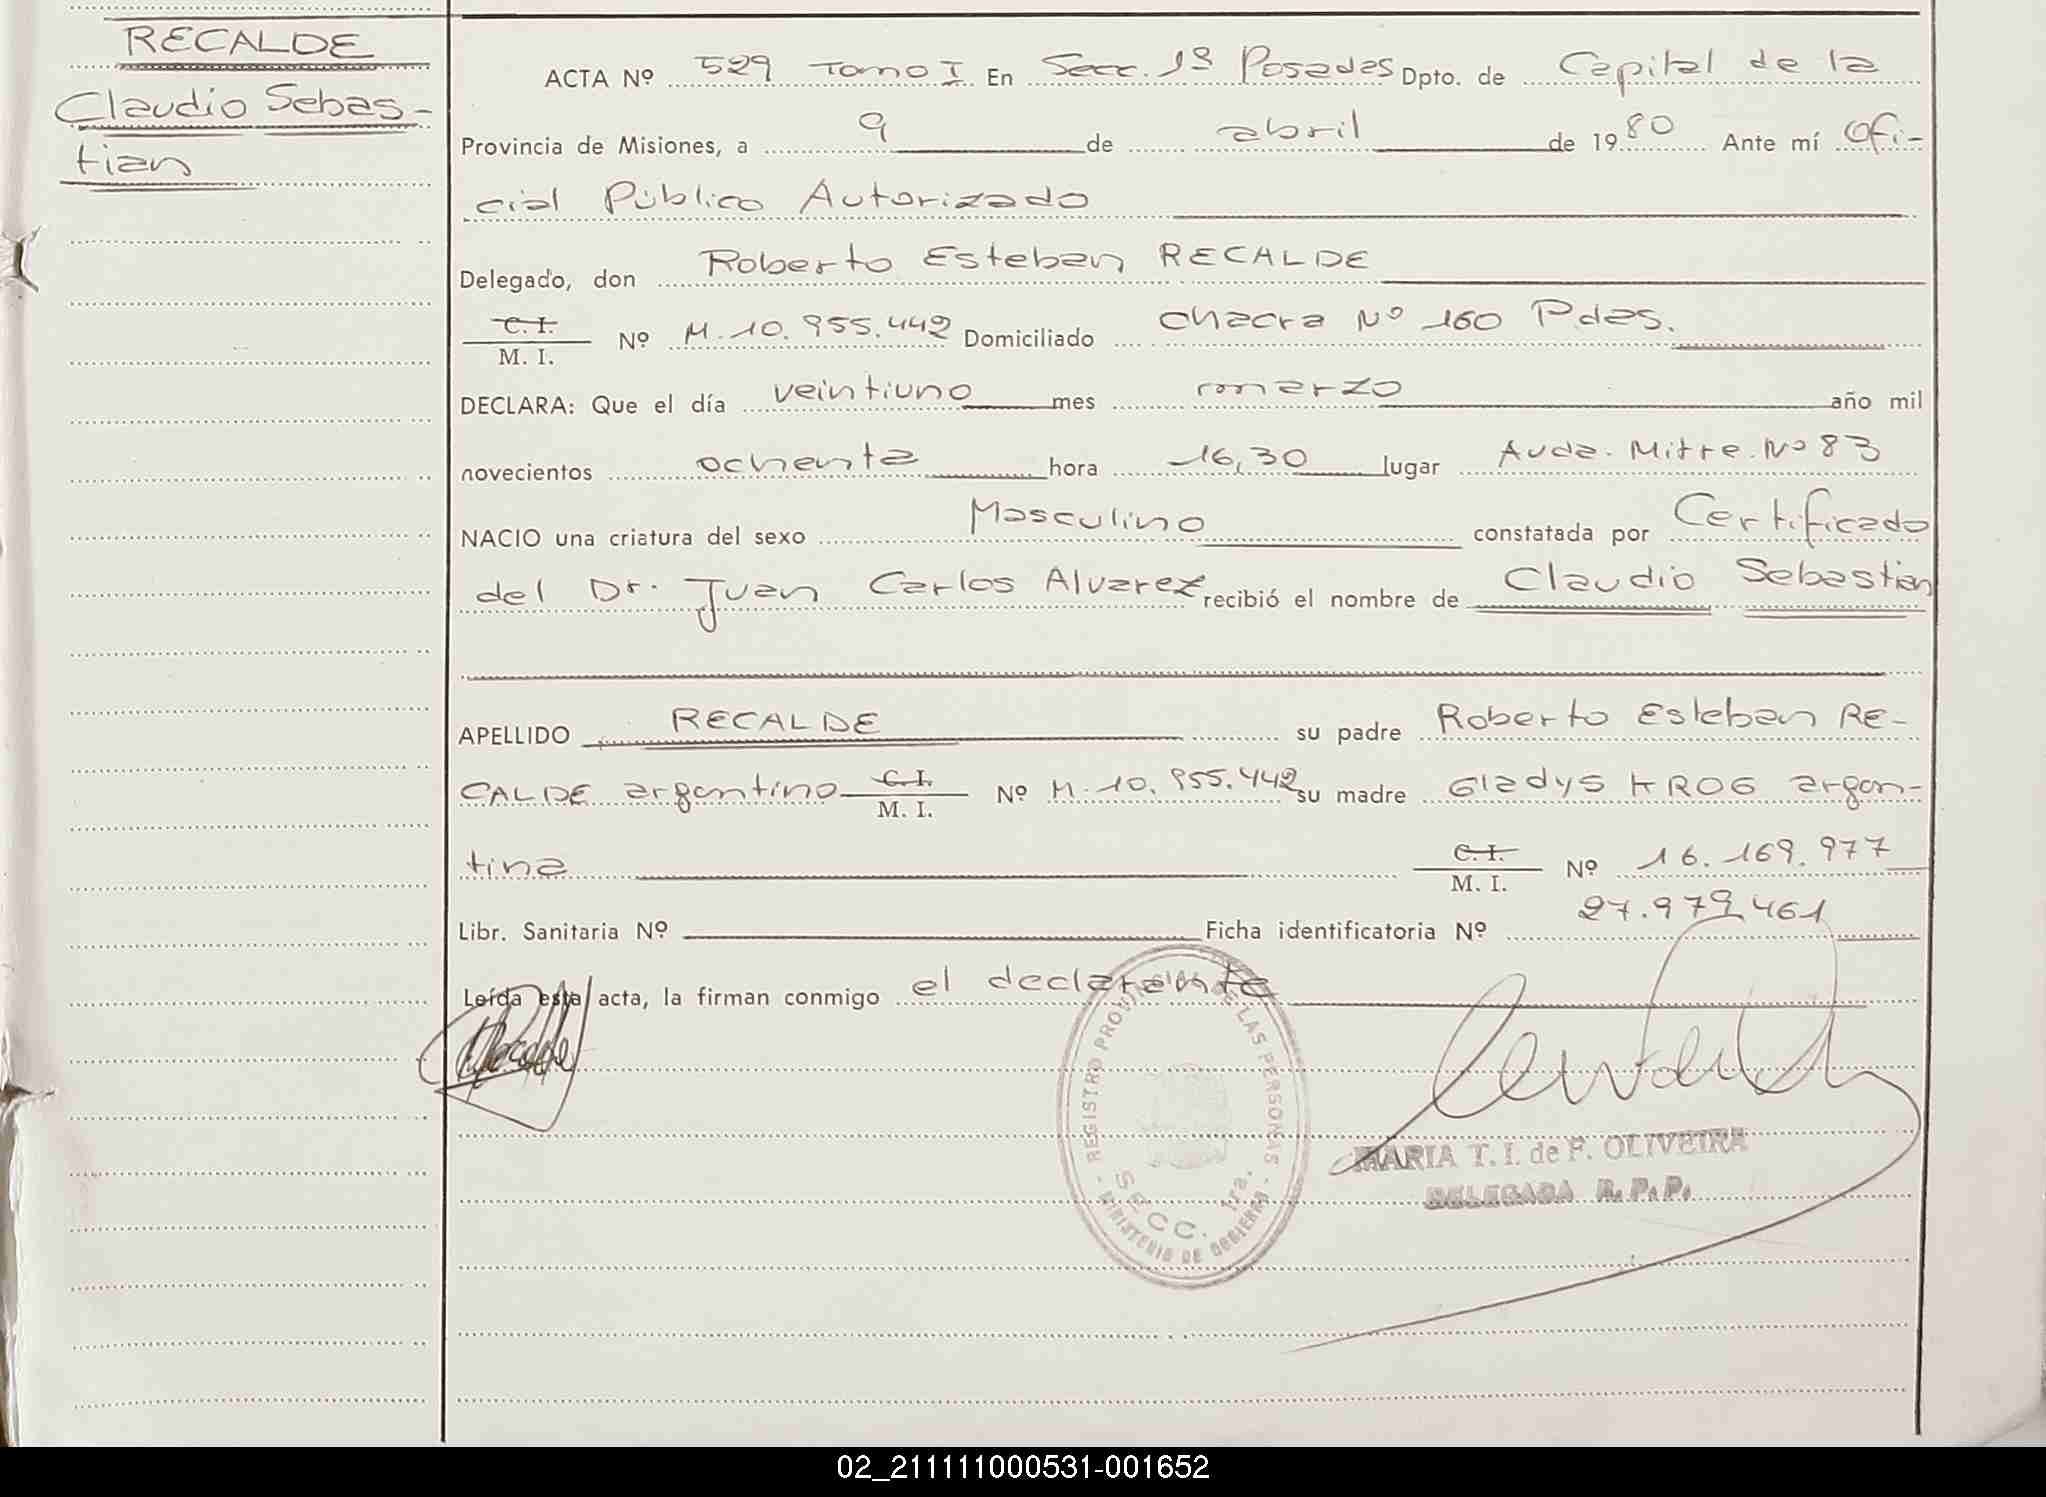 RECALDE
Claudio Sebas-
tian
ACTA Nº 529 Tomo I En Secc. 1ª Posadas Dpto. de Capital de la
Provincia de Misiones, a 9 de abril de 1980 Ante mí Ofi-
cial Público Autorizado
Delegado, don Roberto Esteban RECALDE
C. I.
M. I. Nº M. 10.955.442 Domiciliado chacra Nº 160 Pdas.
DECLARA: Que el día veintiuno mes marzo año mil
novecientos ochenta hora 16,30 lugar Avda. Mitre. Nº 83
NACIO una criatura del sexo Masculino constatada por Certificado
del Dr. Juan Carlos Alvarez recibió el nombre de Claudio Sebastian
APELLIDO RECALDE su padre Roberto Esteban RE-
CALDE argentino C. I. M. I. Nº M. 10.955.442 su madre Gladys KROG argen-
tina C. I. M. I. Nº 16.169.977
Libr. Sanitaria Nº Ficha identificatoria Nº 27.979.461
Leída esta acta, la firman conmigo el declarante
REGISTRO PROVINCIAL DE LAS PERSONAS
SECC. 1ra.
- MINISTERIO DE GOBIERNO -
MARIA T. I. de F. OLIVEIRA
DELEGADA R. P. P.
02_211111000531-001652